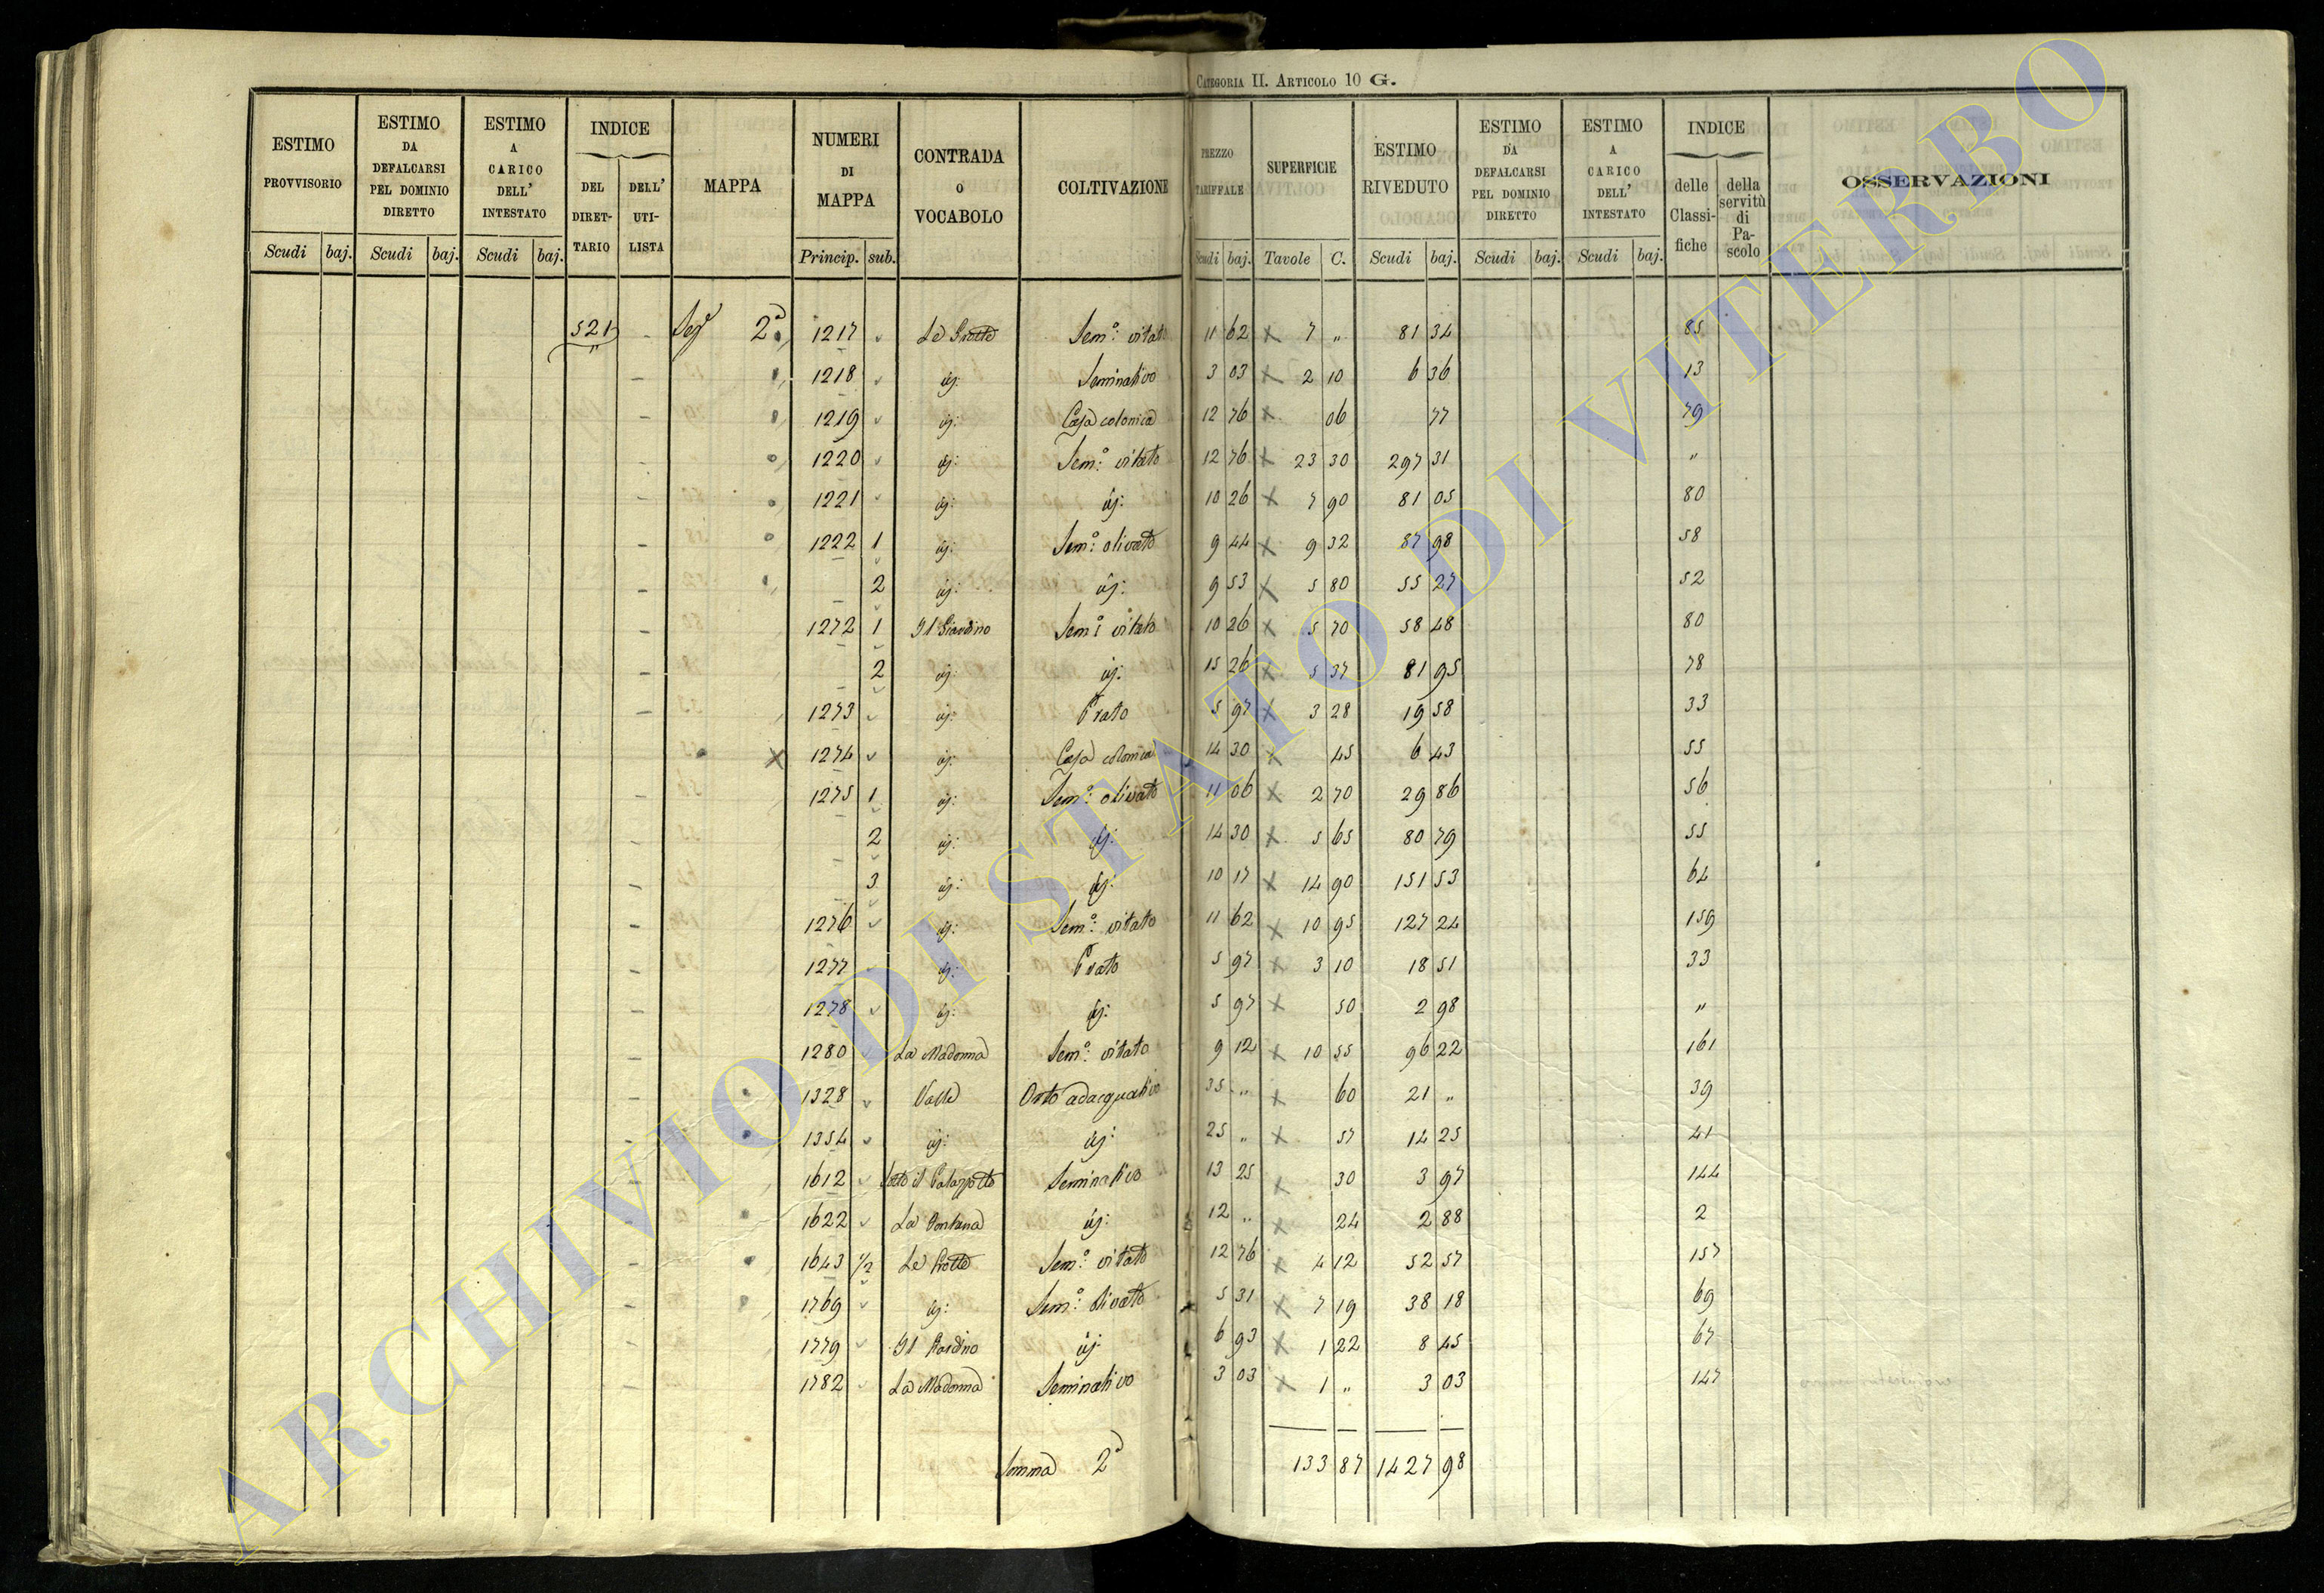 CATEGORIA II. ARTICOLO 10 G.
ESTIMO PROVVISORIO Scudi baj.
ESTIMO DA DEFALCARSI PEL DOMINIO DIRETTO Scudi baj.
ESTIMO A CARICO DELL' INTESTATO Scudi baj.
INDICE DEL DIRETTARIO DELL' UTILISTA
MAPPA
NUMERI DI MAPPA Princip. sub.
CONTRADA O VOCABOLO
COLTIVAZIONE
PREZZO TARIFFALE Scudi baj.
SUPERFICIE Tavole C.
ESTIMO RIVEDUTO Scudi baj.
ESTIMO DA DEFALCARSI PEL DOMINIO DIRETTO Scudi baj.
ESTIMO A CARICO DELL' INTESTATO Scudi baj.
INDICE delle Classifiche della servitù di Pascolo
OSSERVAZIONI
521 - Seg 2a 1217 Le Grotte Sem.o vitato 11 62 x 7 „ 81 34 85
- 1218 id: Seminativo 3 03 x 2 10 6 36 13
- 1219 id: Casa colonica 12 76 x 06 77 79
- 1220 id: Sem.o vitato 12 76 x 23 30 297 31 „
- 1221 id: id: 10 26 x 7 90 81 05 80
- 1222 1 id: Sem.o olivato 9 44 x 9 32 87 98 58
- 2 id: id: 9 53 x 5 80 55 27 52
- 1272 1 Il Giardino Sem.o vitato 10 26 x 5 70 58 48 80
- 2 id: id: 15 26 x 5 37 81 95 78
- 1273 id: Prato 5 97 x 3 28 19 58 33
x 1274 id: Casa colonica 14 30 x 45 6 43 55
- 1275 1 id: Sem.o olivato 11 06 x 2 70 29 86 56
- 2 id: id: 14 30 x 5 65 80 79 55
- 3 id: id: 10 17 x 14 90 151 53 64
- 1276 id: Sem.o vitato 11 62 x 10 95 127 24 159
- 1277 id: Prato 5 97 x 3 10 18 51 33
- 1278 id: id: 5 97 x 50 2 98 „
- 1280 La Madonna Sem.o vitato 9 12 x 10 55 96 22 161
- 1328 Valle Orto adacquativo 35 „ x 60 21 „ 39
- 1354 id: id: 25 „ x 57 14 25 41
- 1612 Sotto il Palazzotto Seminativo 13 25 x 30 3 97 144
- 1622 La Fontana id: 12 „ x 24 2 88 2
- 1643 1/2 Le Grotte Sem.o vitato 12 76 x 4 12 52 57 157
- 1769 id: Sem.o olivato 5 31 x 7 19 38 18 69
- 1779 Il Giardino id: 6 93 x 1 22 8 45 67
- 1782 La Madonna Seminativo 3 03 x 1 „ 3 03 147
Somma 2a 133 87 1427 98
ARCHIVIO DI STATO DI VITERBO